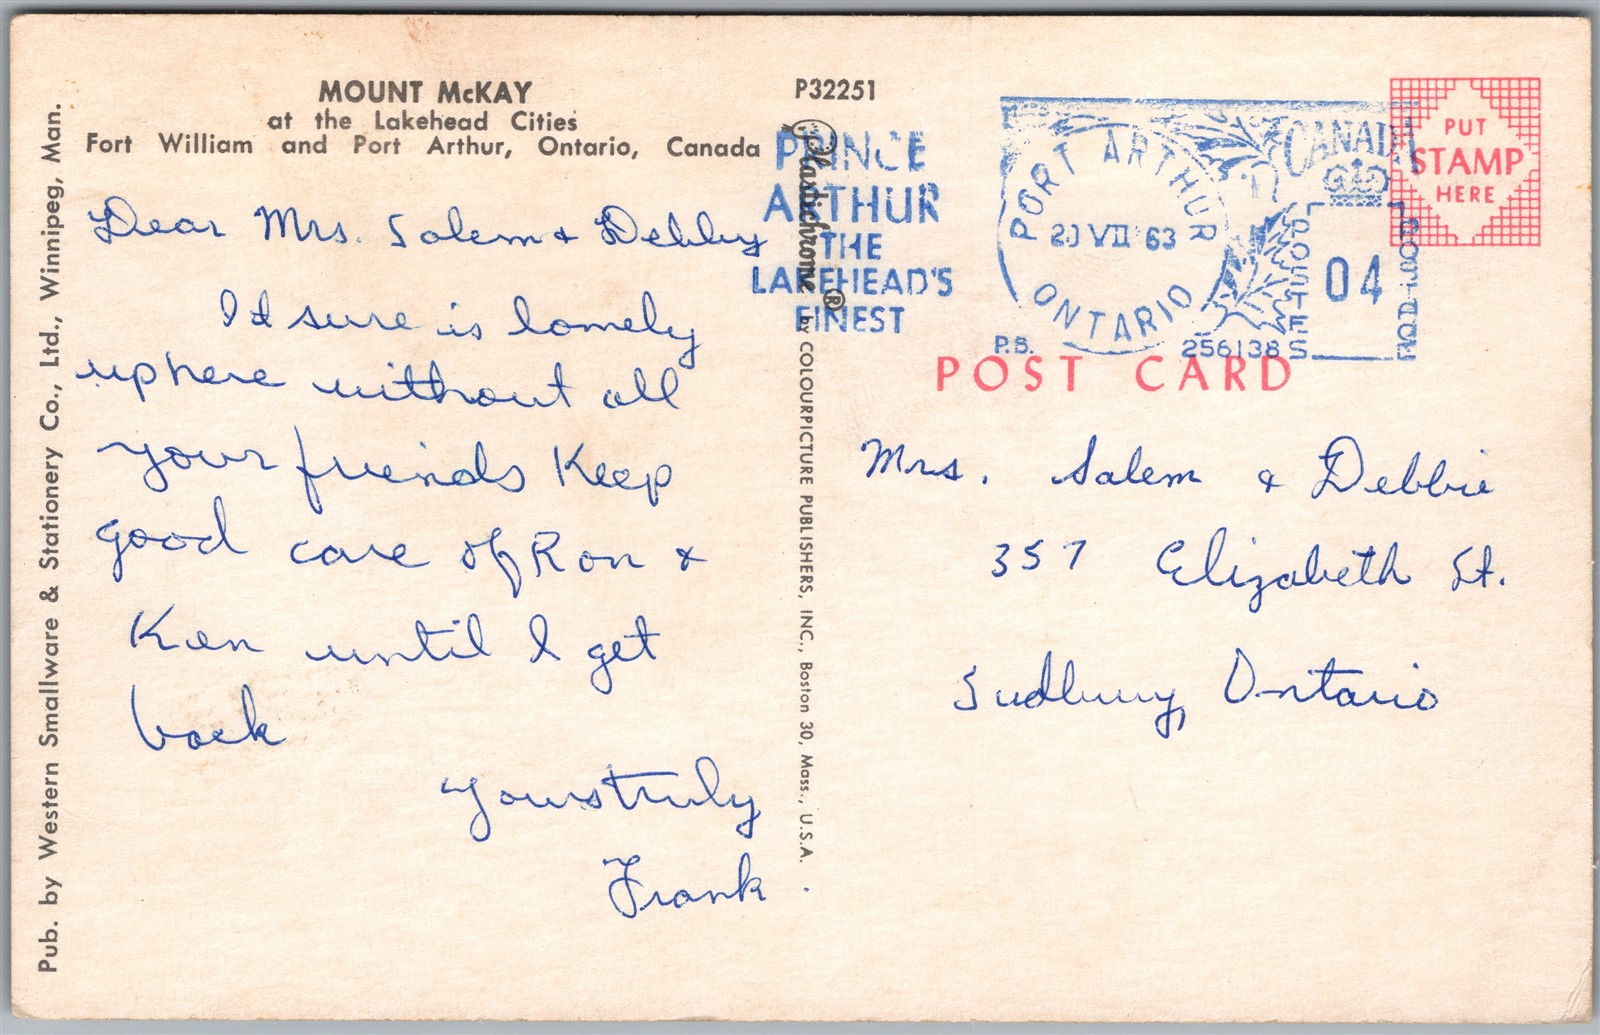 MOUNT McKAY
at the Lakehead Cities
Fort William and Port Arthur, Ontario, Canada
Dear Mrs. Salem & Debby
It sure is lonely
up here without all
your friends Keep
good care of Ron &
Ken until I get
back
Yours truly
Frank.
Pub. by Western Smallware & Stationery Co., Ltd., Winnipeg, Man.
P32251
Plastichrome ® by COLOURPICTURE PUBLISHERS, INC., Boston 30, Mass., U.S.A.
PRINCE
ARTHUR
THE
LAKEHEAD'S
FINEST
PORT ARTHUR
VII 63
ONTARIO
P.B.
256138
CANADA
POSTES
04
POSTAGE
PUT
STAMP
HERE
POST CARD
Mrs. Salem & Debbie
357 Elizabeth St.
Sudbury, Ontario